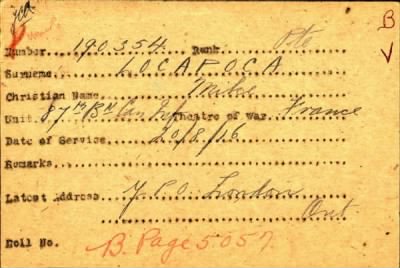 B
V
Number 190354 Rank Pte
Surname LOCAPOCA
Christian Name Mike
Unit 87th Bn Can Inf Theatre of War France
Date of Service 20/8/16
Remarks
Latest Address G.P.O. London
Ont
Roll No. B. Page 5057